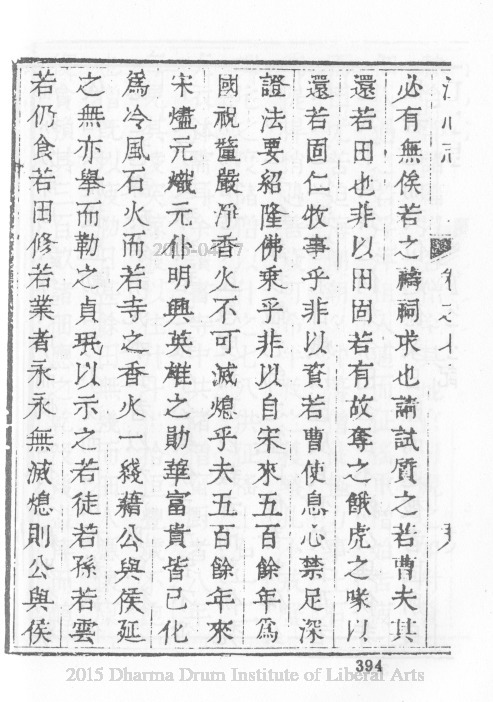 必有無俟若之禱祠求也請試質之若曹夫其
還若田也非以田固若有故奪之餓虎之喙以
還若固仁牧事乎非以資若曹使息心禁足深
證法要紹隆佛乘乎非以自宋來五百餘年為
國祝釐嚴淨香火不可滅熄乎夫五百餘年來
宋燼元熾元仆明興英雄之勛華富貴皆已化
為冷風石火而若寺之香火一綫藉公與侯延
之無亦舉而勒之貞珉以示之若徒若孫若雲
若仍食若田修若業者永永無滅熄則公與侯
394
2015 Dharma Drum Institute of Liberal Arts